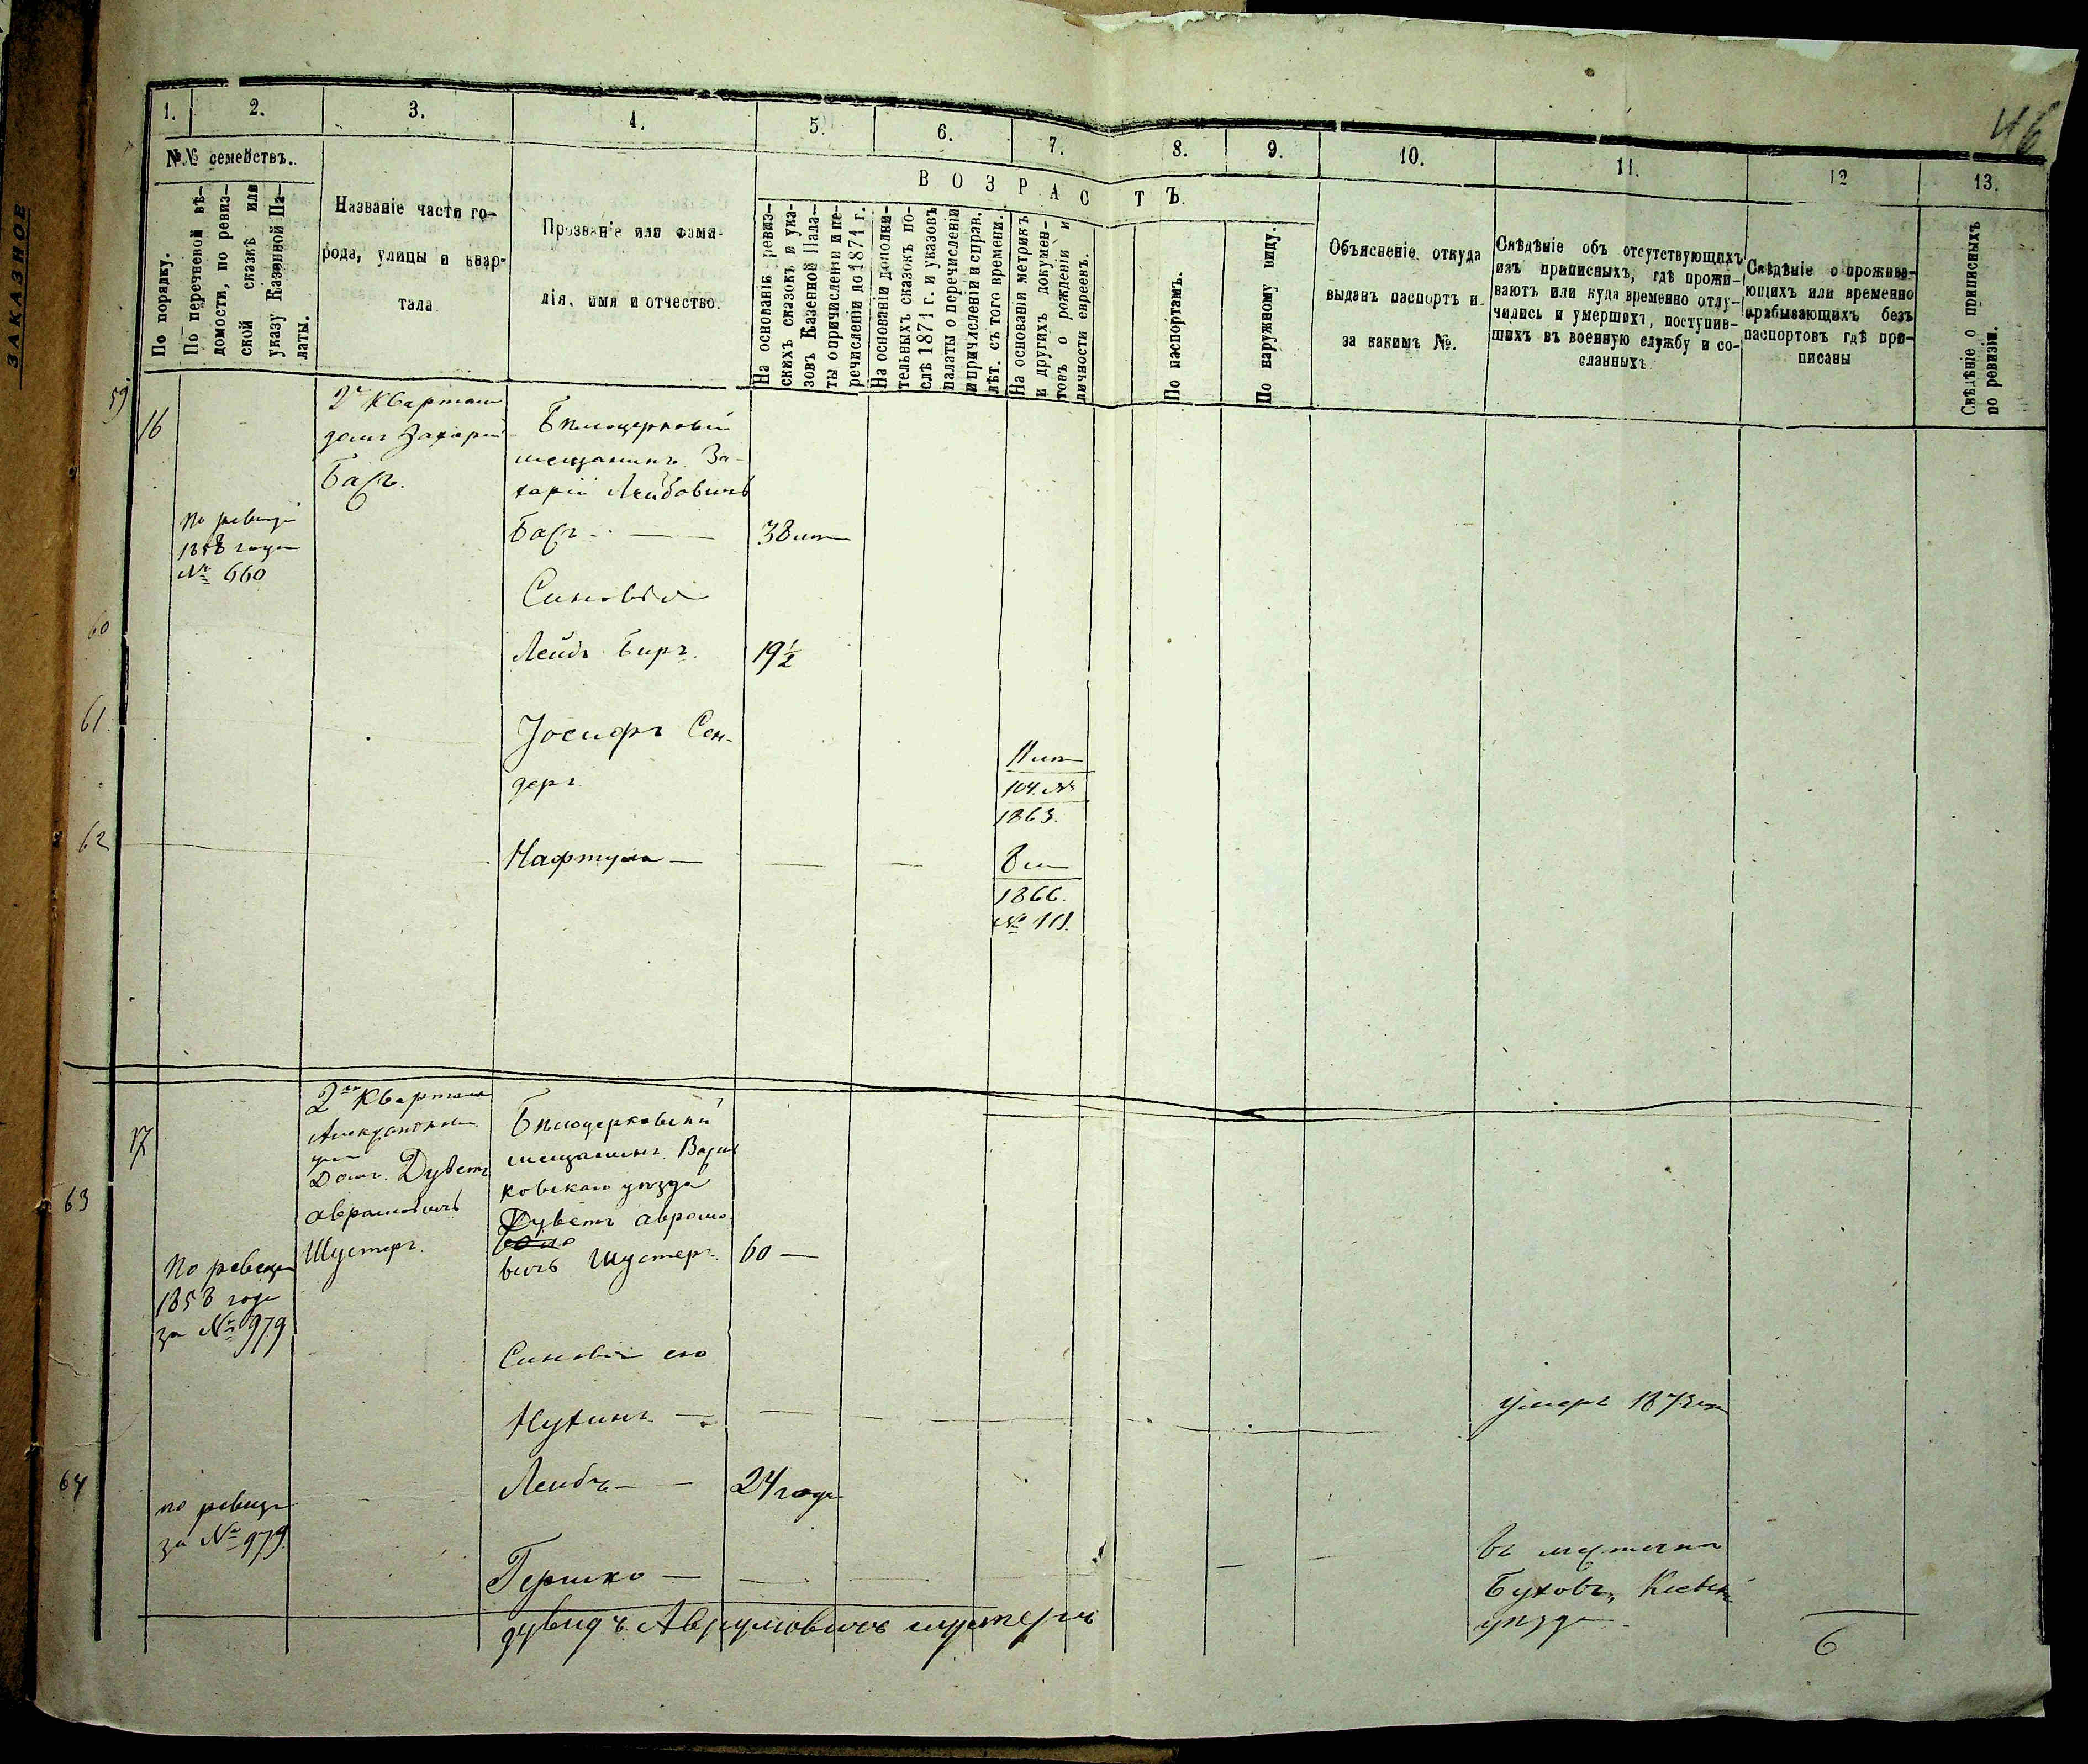 ЗАКАЗНОЕ
46
1.
2.
3.
4.
5.
6.
7.
8.
9.
10.
11.
12
13.
№№ семействъ.
По порядку.
По перечневой вѣ-
домости, по ревиз-
ской сказкѣ или
указу Казенной Па-
латы.
Названіе части го-
рода, улицы и квар-
тала
Прозваніе или фами-
лія, имя и отчество.
ВОЗРАСТЪ.
На основаніи ревиз-
скихъ сказокъ и ука-
зовъ Казенной Пала-
ты о причисленіи и пе-
речисленіи до 1871 г.
На основаніи дополни-
тельныхъ сказокъ по-
слѣ 1871 г. и указовъ
палаты о перечисленіи
и причисленіи и справ.
лѣт. съ того времени.
На основаніи метрикъ
и другихъ докумен-
товъ о рожденіи и
личности евреевъ.
По паспортамъ.
По наружному виду.
Объясненіе откуда
выданъ паспортъ и
за какимъ №.
Свѣдѣніе объ отсутствующихъ
изъ приписныхъ, гдѣ прожи-
ваютъ или куда временно отлу-
чились и умершихъ, поступив-
шихъ въ военную службу и со-
сланныхъ.
Свѣдѣніе о прожива-
ющихъ или временно
прабывающихъ безъ
паспортовъ гдѣ при-
писаны
Свѣдѣніе о приписныхъ
по ревизіи.
59
16
2 Квартал
домъ Захарій
Басъ.
Бѣлоцерковскій
мещанинъ За-
харій Лейбовичъ
Басъ
38 лѣт
По ревизіи
1858 года
№ 660
Синовья
60
Лейбъ Биръ.
19½
61.
Іосифъ Сен-
деръ
11 лѣт
104 №
1863.
62
Нафтула
8 лѣ
1866.
№ 111.
17
63
2 Квартала
Дом. Дуветъ
Аврамовичъ
Шустеръ.
Бѣлоцерковскій
мещанинъ Василь
ковскаго уѣзда
Дуветъ аврамо
вичъ Шустеръ.
60
По ревизіи
1858 года
за № 979
Синовья его
Нухимъ
умеръ 1873 года
64
Лейбъ
24 года
по ревизіи
за № 979.
Гершко
въ местечкѣ
Буховъ, Кіевск
уѣзда
дувидъ Аврумовичъ шустеръ
6